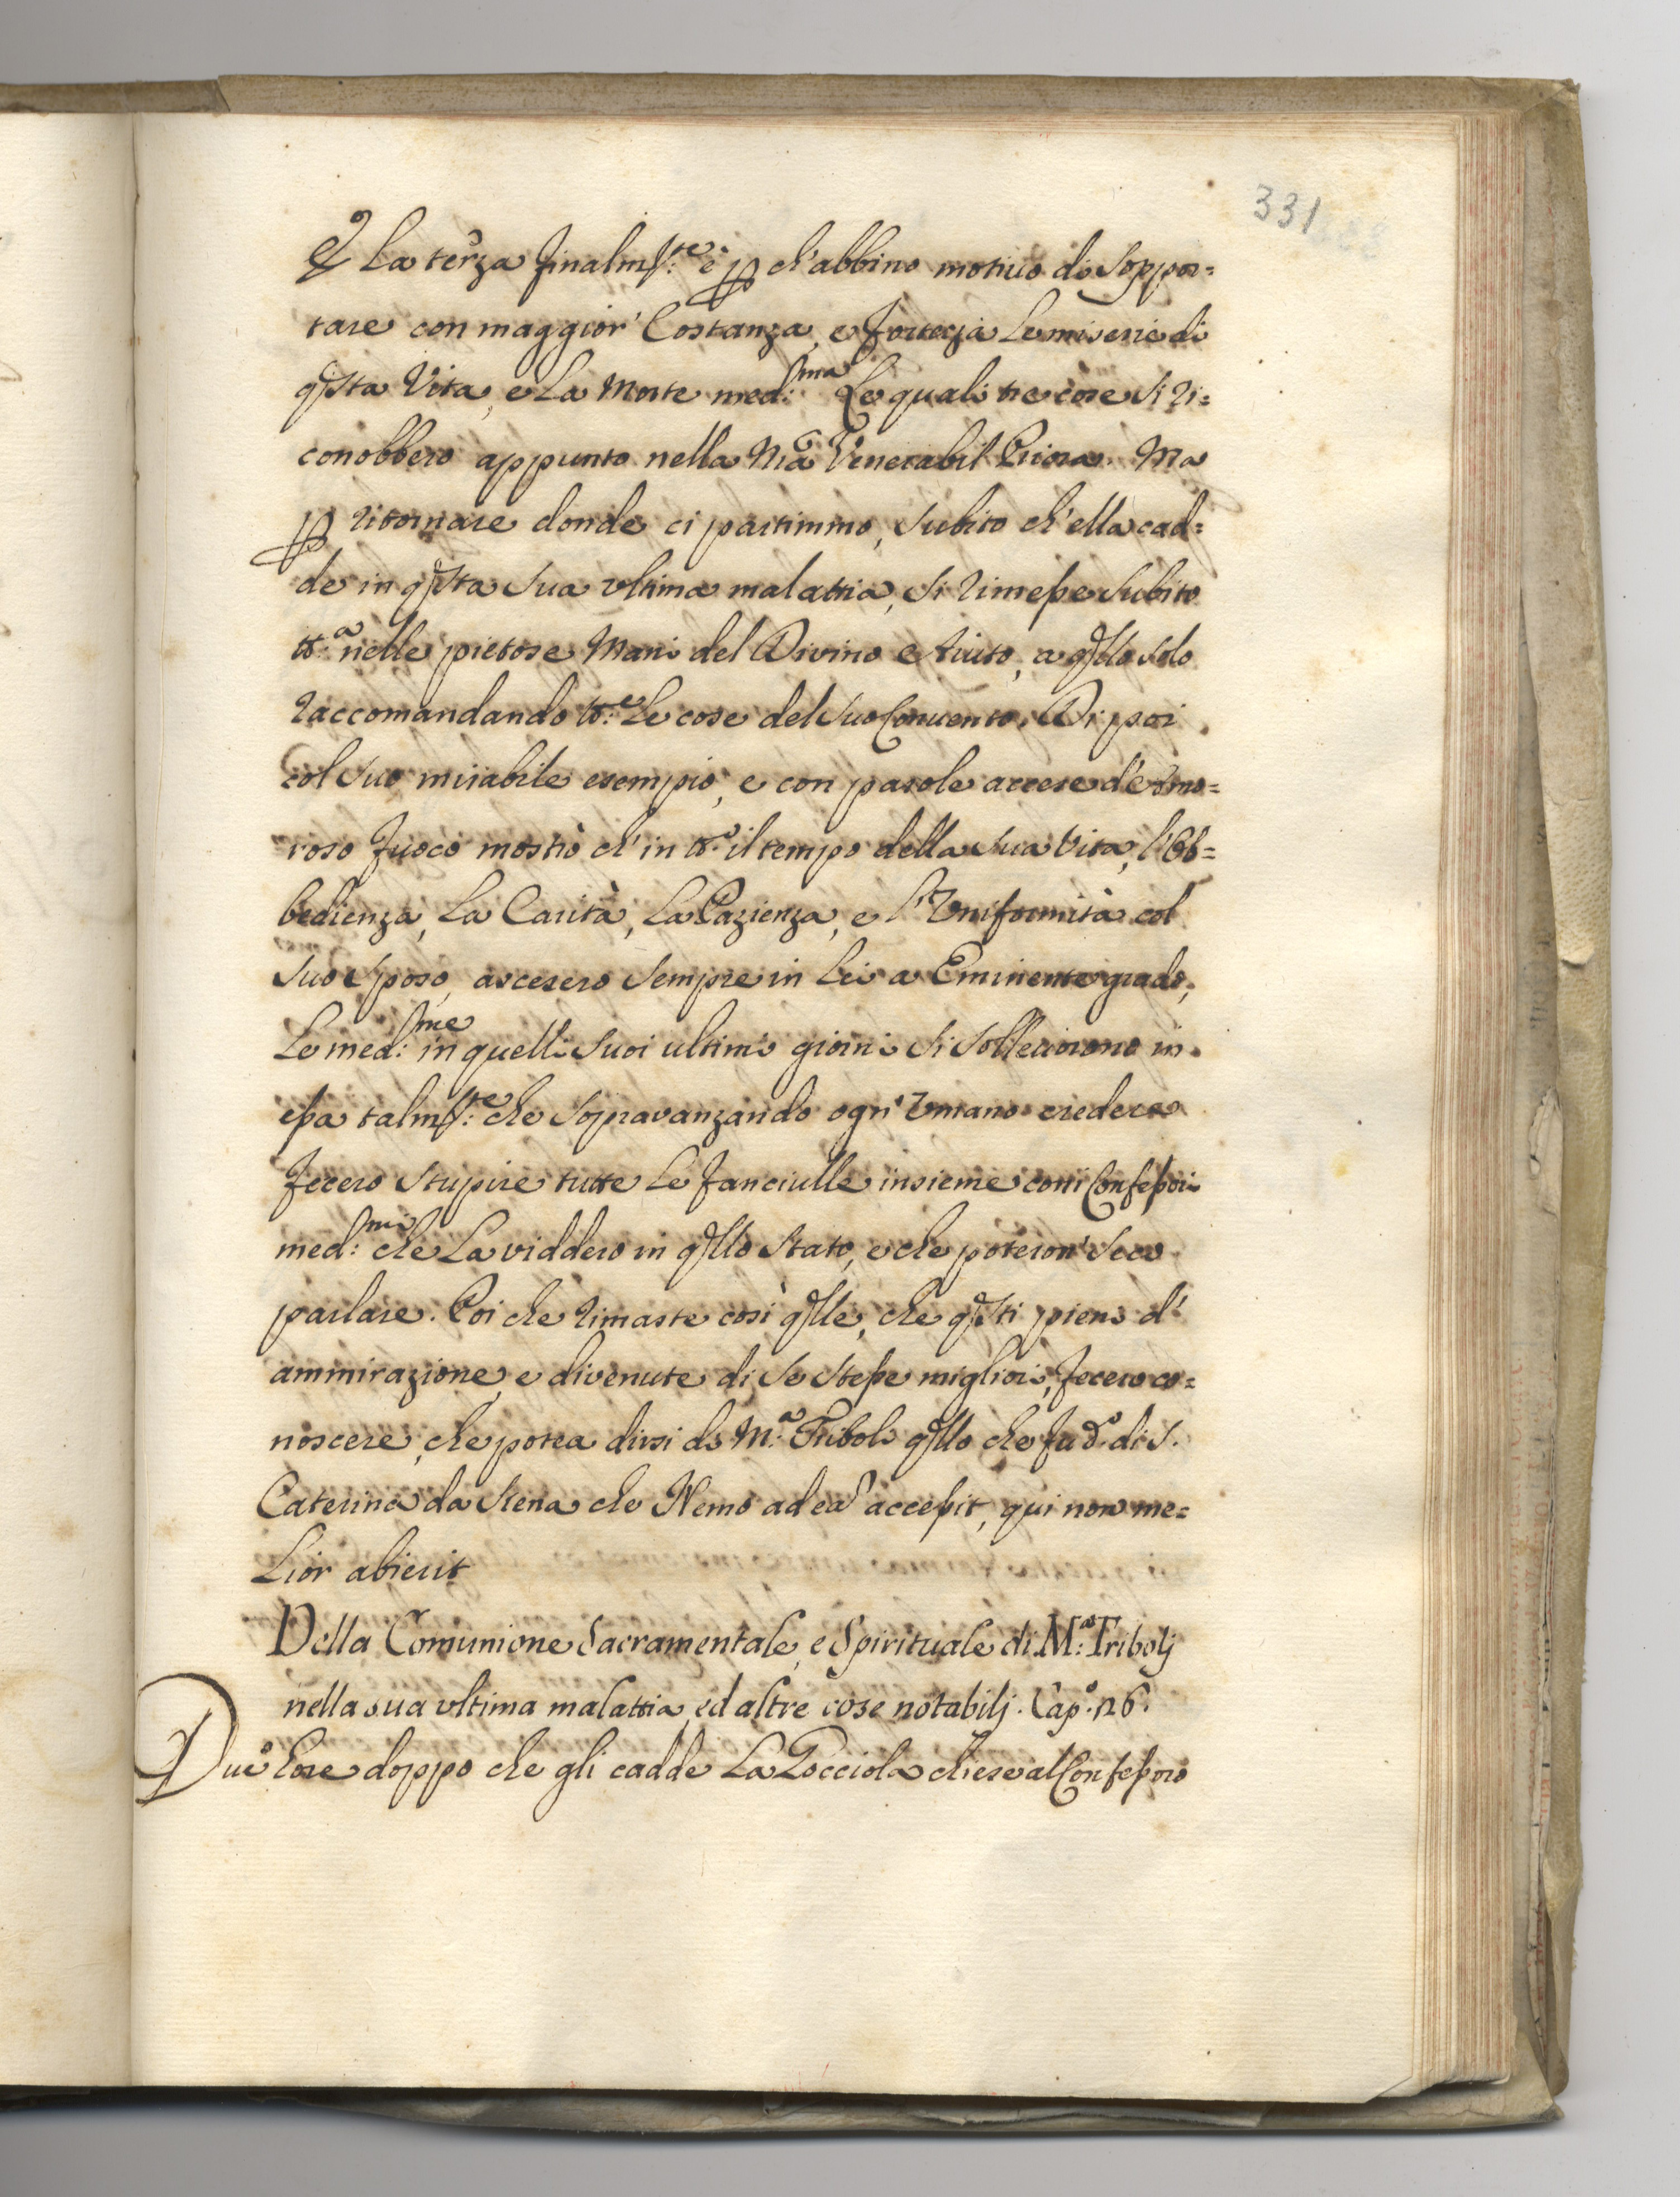 331
E La terza finalm:te è p ch'abbino motivo di Soppor=
tare con maggior' Costanza, e fortezza Le miserie di
qsta Vita, e La Morte med:ma Le quali tre cose si ri=
conobbero appunto nella Nra Venerabil Priora. Ma
p ritornare donde ci partimmo, subito ch'ella cad=
de in qsta sua ultima malattia, si rimesse subito
tt:a nelle pietose Mani del Divino Aiuto, a qllo solo
raccomandando tt:e Le cose del suo Convento. Di poi
col suo mirabile esempio, e con parole accese d'Amo=
roso fuoco mostrò ch'in tt:o il tempo della sua Vita, l'Ob=
bedienza, La Carità, La Pazienza, e l'Uniformità col
suo Sposo, ascesero sempre in Lei a Eminente grado,
Le med:me in quelli suoi ultimi giorni si sollevorono in
essa talm:te che sopravanzando ogn' Umano credere
fecero stupire tutte Le fanciulle insieme con i Confessori
med:mi che La viddero in qllo Stato, e che poteron' seco
parlare. Poi che rimaste così qlle, che qsti pieni d'
ammirazione, e divenute di se stesse migliori, fecero co=
noscere, che potea dirsi di M:a Triboli qllo che fu d:o di S.
Caterina da Siena che Nemo ad ea accessit, qui non me=
Lior abierit
Della Comunione Sacramentale, e Spirituale di M:a Tribolj
nella sua ultima malattia, ed altre cose notabilj. Cap:o 26.
Due hore doppo che gli cadde La Gocciola chiese al Confessoro